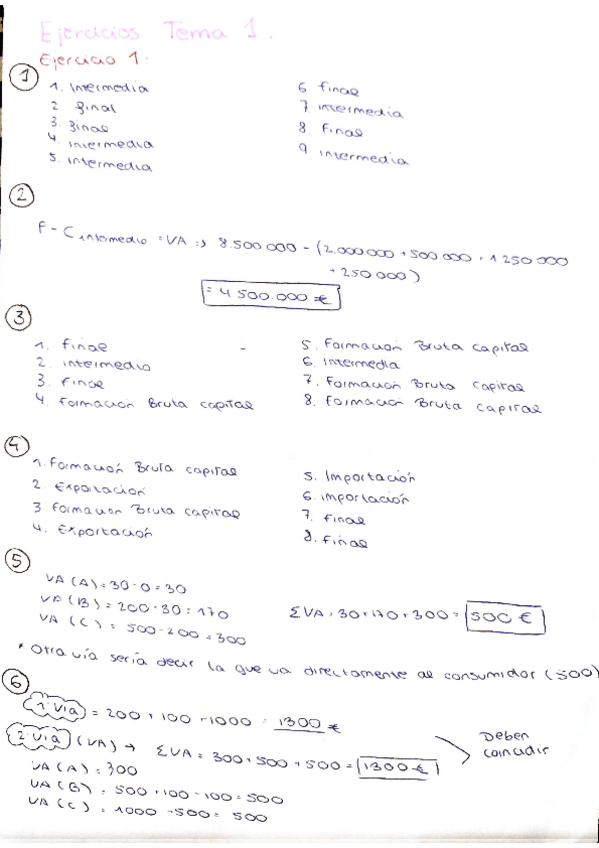 Ejercicios Tema 1.
Ejercicio 1.
①
1. Intermedia
2 final
3. Final
4. intermedia
5. intermedia
6. final
7. intermedia
8. Final
9. intermedia
②
P - C intermedio = VA => 8.500.000 - (2.000.000 + 500 000 + 1 250 000
+ 250 000)
= 4 500.000 €
③
1. final
2. intermedio
3. Final
4. Formación Bruta capital
5. Formación Bruta capital
6. Intermedia
7. Formación Bruta capital
8. Formación Bruta capital
④
1. Formación Bruta capital
2. Exportación
3 Formación Bruta capital
4. Exportación
5. Importación
6. importación
7. final
8. final
⑤
VA (A) = 30 - 0 = 30
VA (B) = 200 - 30 = 170
VA (C) = 500 - 200 = 300
ΣVA = 30 + 170 + 300 = 500 €
* Otra vía sería decir la que va directamente al consumidor (500)
⑥
1ª vía = 200 + 100 + 1000 = 1300 €
2ª vía (VA) → ΣVA = 300 + 500 + 500 = 1300 €
Deben
coincidir
VA (A) = 300
VA (B) = 500 + 100 - 100 = 500
VA (C) = 1000 - 500 = 500